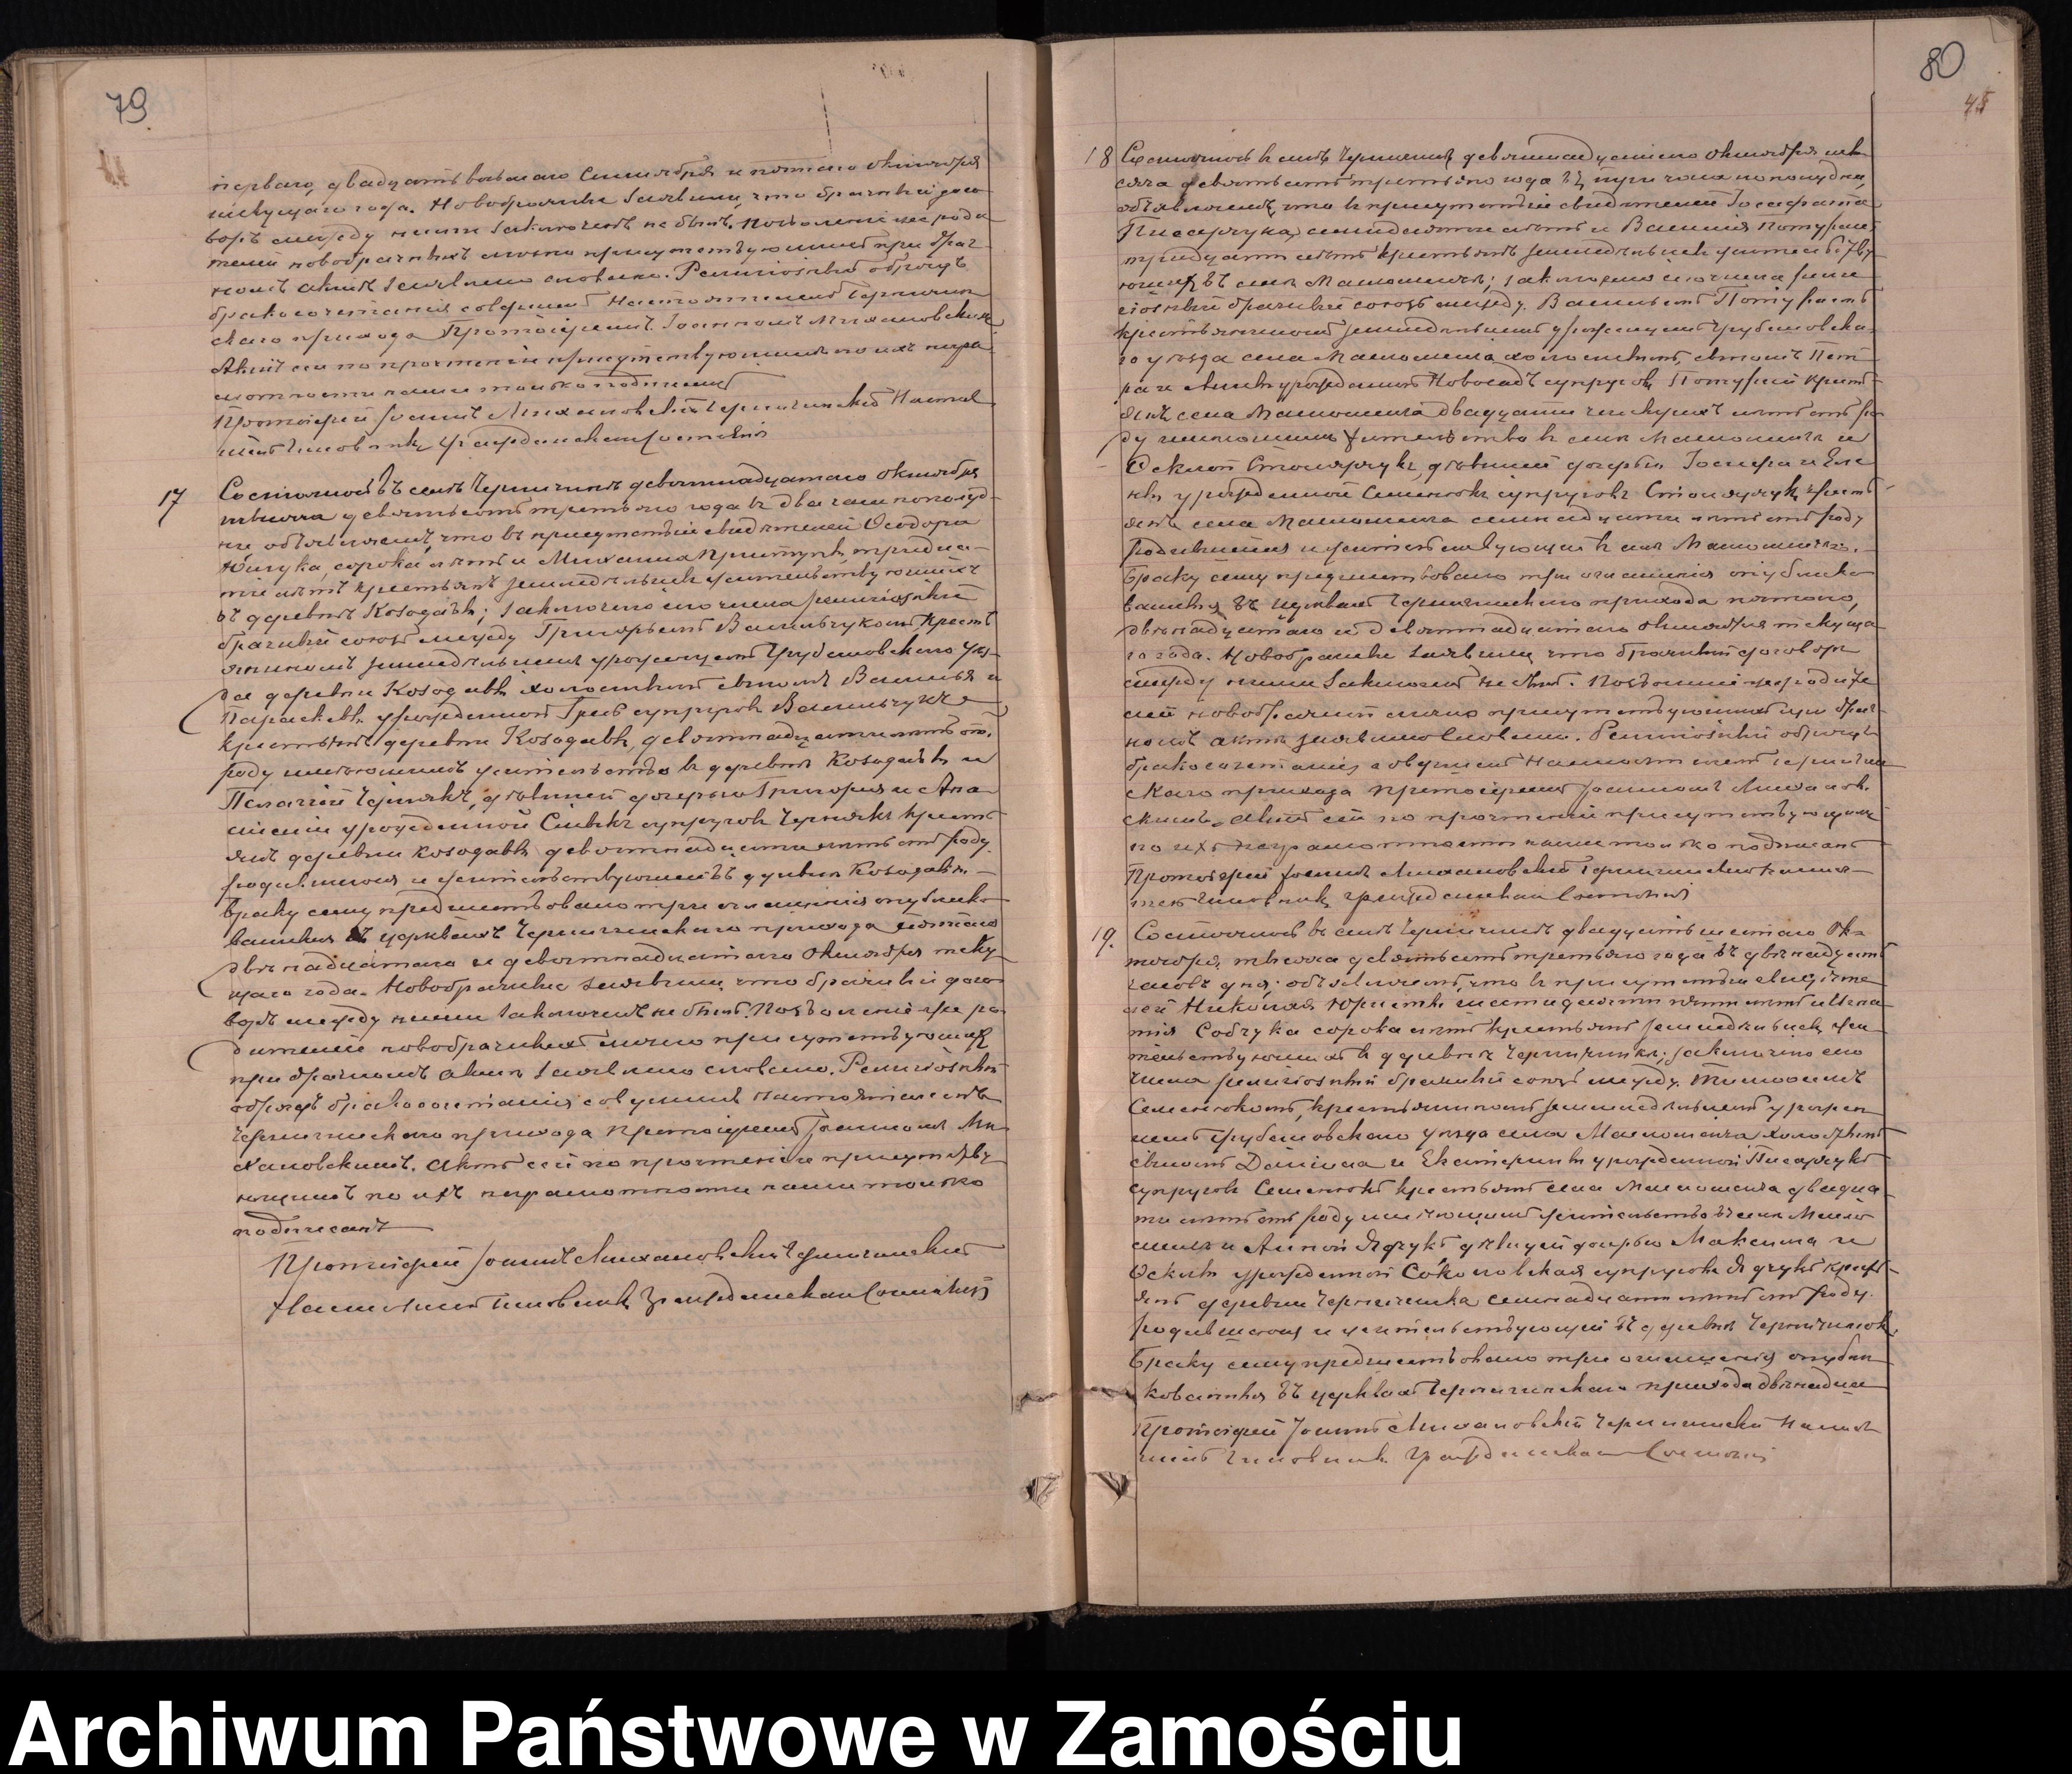 79
перваго, двадцать восьмаго Сентября и пятаго Октября
текущаго года. Новобрачные заявили, что брачный дого
воръ между ними заключенъ не былъ. Позволеніе же роди
телей новобрачныхъ лично присутствующихъ при брач
номъ актѣ заявлено словесно. Религіозный обрядъ
бракосочетанія совершенъ Настоятелемъ Черничин
скаго прихода Протоіереемъ Іоанномъ Михаловскимъ
Актъ сей по прочтеніи присутствующимъ по ихъ негра
мотности нами только подписанъ
Протоіерей Іоаннъ Михаловскій Черничинскій Настоя
тель Чиновникъ Гражданскаго Состоянія
17 Состоялось въ селѣ Черничинѣ девятнадцатаго Октября
тысяча девятьсотъ третьяго года въ два часа пополуд
ни объявляемъ, что въ присутствіи свидѣтелей Ѳеодора
сорока лѣтъ и Михаила тридца
ти лѣтъ крестьянъ земледѣльцевъ жительствующихъ
въ деревнѣ Козодавы; заключено сего числа религіозный
брачный союзъ между Григорьемъ Васильчукомъ кресть
яниномъ земледѣльцемъ урожденцемъ Грубешовскаго уѣз
да деревни Козодавы холостымъ сыномъ Василья и
Параскевы урожденной Грыб супруговъ Васильчукъ
крестьянъ деревни Козодавы, девятнадцати лѣтъ отъ
роду имѣющимъ жительство въ деревнѣ Козодавы и
Пелагіей Чернякъ, дѣвицей дочерью Григорія и Ана
стасіи урожденной супруговъ Чернякъ кресть
янъ деревни Козодавы девятнадцати лѣтъ отъ роду
родившеюся и жительствующей въ деревнѣ Козодавы.—
Браку сему предшествовало три оглашенія опублико
ванныя въ церквахъ Черничинскаго прихода пятаго
двѣнадцатаго и девятнадцатаго Октября теку
щаго года. Новобрачные заявили что брачный дого
воръ между ними заключенъ не былъ. Позволеніе же ро
дителей новобрачныхъ лично присутствующихъ
при брачномъ актѣ заявлено словесно. Религіозный
обрядъ бракосочетанія совершенъ Настоятелемъ
Черничинскаго прихода Протоіереемъ Іоанномъ Ми
халовскимъ. Актъ сей по прочтеніи присутству
ющимъ по ихъ неграмотности нами только
подписанъ
Протоіерей Іоаннъ Михаловскій Черничинскій
Настоятель Чиновникъ Гражданскаго Состоянія
80
45
18 Состоялось въ селѣ Черничинѣ девятнадцатаго Октября ты
сяча девятьсотъ третьяго года въ три часа пополудни,
объявляемъ, что въ присутствіи свидѣтелей Іосафата
Писарчука, лѣтъ и Василія Потурай
тридцати лѣтъ крестьянъ земледѣльцевъ жительству
ющихъ въ селѣ Маломѣнчѣ; заключено сего числа рели
гіозный брачный союзъ между Васильемъ Потураемъ
крестьяниномъ земледѣльцемъ урожденцемъ Грубешовска
го уѣзда села Маломѣнча холостымъ, сыномъ Пет
ра и Анны урожденной Новосадъ супруговъ Потурай кресть
янъ села Маломѣнча двадцати лѣтъ отъ ро
ду имѣющимъ жительство въ селѣ Маломѣнчѣ и
Ѳеклой Столярчукъ, дѣвицей дочерью Іосифа и Еле
ны урожденной Семенюкъ супруговъ Столярчукъ кресть
янъ села Маломѣнча семнадцати лѣтъ отъ роду
родившейся и жительствующей въ селѣ Маломѣнчѣ.—
Браку сему предшествовало три оглашенія опублико
ванныя въ церквахъ Черничинскаго прихода пятаго,
двѣнадцатаго и девятнадцатаго Октября текуща
го года. Новобрачные заявили что брачный договоръ
между ними заключенъ не былъ. Позволеніе же родите
лей новобрачныхъ лично присутствующихъ при брач
номъ актѣ заявлено словесно. Религіозный обрядъ
бракосочетанія совершенъ Настоятелемъ Черничин
скаго прихода Протоіереемъ Іоанномъ Михалов
скимъ. Актъ сей по прочтеніи присутствующимъ
по ихъ неграмотности нами только подписанъ
Протоіерей Іоаннъ Михаловскій Черничинскій Настоя
тель Чиновникъ Гражданскаго Состоянія
19. Состоялось въ селѣ Черничинѣ двадцать шестаго Ок
тября, тысяча девятьсотъ третьяго года въ двѣнадцать
часовъ дня; объявляемъ, что въ присутствіи свидѣте
лей Николая шестидесяти пяти лѣтъ и Игна
тія Собчука сорока лѣтъ крестьянъ земледѣльцевъ, жи
тельствующихъ въ деревнѣ Черничинкѣ; заключено сего
числа религіозный брачный союзъ между Тимоѳеемъ
Семенюкомъ, крестьяниномъ земледѣльцемъ урожден
цемъ Грубешовскаго уѣзда села Маломѣнча холостымъ
сыномъ Даніила и Екатерины урожденной Писарчукъ
супруговъ Семенюкъ крестьянъ села Маломѣнча двадца
ти лѣтъ отъ роду имѣющимъ жительство въ селѣ Мало
мѣнчѣ и Анной Ядчукъ дѣвицей дочерью Максима и
Ѳеклы урожденной Соколовская супруговъ Ядчукъ кресть
янъ деревни Черничинка семнадцати лѣтъ отъ роду
родившеюся и жительствующей въ деревнѣ Черничинкѣ.
Браку сему предшествовало три оглашенія опубли
кованныя въ церквахъ Черничинскаго прихода двѣнадца
Протоіерей Іоаннъ Михаловскій Черничинскій Настоя
тель Чиновникъ Гражданскаго Состоянія
Archiwum Państwowe w Zamościu